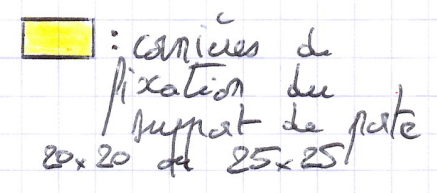 : cornières de
fixation du
support de porte
20x20 ou 25x25